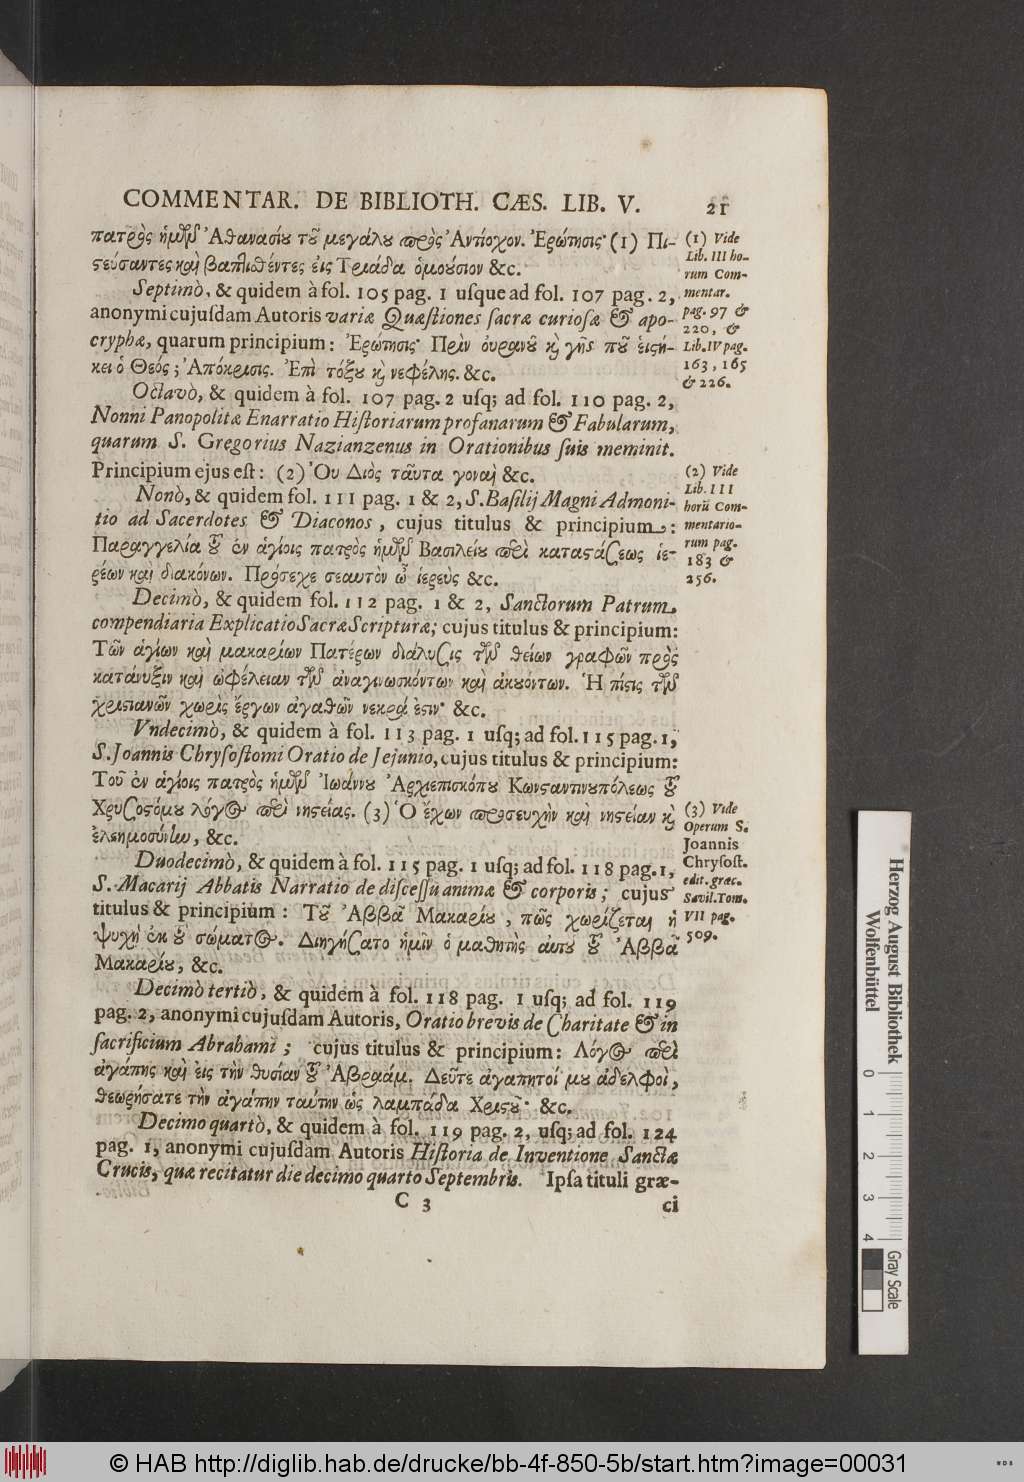 COMMENTAR. DE BIBLIOTH. CÆS. LIB. V. 21
πατρὸς ἡμῶν Ἀθανασίου τοῦ μεγάλου πρὸς Ἀντίοχον. Ἐρώτησις· (1) Πι-
ςεύσαντες καὶ βαπτιθέντες εἰς Τριάδα ὁμούσιον &c.
Septimò, & quidem à fol. 105 pag. 1 uſque ad fol. 107 pag. 2,
anonymi cujuſdam Autoris variæ Quæſtiones ſacræ curioſæ & apo-
cryphæ, quarum principium: Ἐρώτησις· Πρὶν ȣ̓ρανȣ͂ κὶ γῆς πȣ͂ εἰςή-
κει ὁ Θεός; Ἀπόκρισις. Ἐπὶ τόξȣ κὶ νεφέλης. &c.
Octavò, & quidem à fol. 107 pag. 2 uſq; ad fol. 110 pag. 2,
Nonni Panopolitæ Enarratio Hiſtoriarum profanarum & Fabularum,
quarum S. Gregorius Nazianzenus in Orationibus ſuis meminit.
Principium ejus eſt: (2) Ὀυ Διὸς ταῦτα γοναὶ &c.
Nonò, & quidem fol. 111 pag. 1 & 2, S. Baſilij Magni Admoni-
tio ad Sacerdotes & Diaconos, cujus titulus & principium:
Παραγγελία τȣ͂ ἐν ἁγίοις πατρὸς ἡμῶν Βασιλείȣ περὶ καταςάσεως ἱε-
ρέων καὶ διακόνων. Πρόσεχε σεαυτὸν ὦ ἱερεὺς &c.
Decimò, & quidem fol. 112 pag. 1 & 2, Sanctorum Patrum
compendiaria Explicatio Sacræ Scripturæ; cujus titulus & principium:
Τῶν ἁγίων καὶ μακαρίων Πατέρων διάλυσις τῶν θείων γραφῶν πρὸς
κατάνυξιν καὶ ὠφέλειαν τῶν ἀναγινωσκόντων καὶ ἀκȣόντων. Ἡ πίςις τῶν
χριςιανῶν χωρὶς ἔργων ἀγαθῶν νεκρά ἐςιν· &c.
Vndecimò, & quidem à fol. 113 pag. 1 uſq; ad fol. 115 pag. 1,
S. Joannis Chryſoſtomi Oratio de Jejunio, cujus titulus & principium:
Τοῦ ἐν ἁγίοις πατρὸς ἡμῶν Ἰωάννȣ Ἀρχιεπισκόπȣ Κωνςαντινȣπόλεως τȣ͂
Χρυσοςόμȣ λόγος περὶ νηςείας. (3) Ὁ ἔχων προσευχὴν καὶ νηςείαν κὶ
ἐλεημοσύνἰω, &c.
Duodecimò, & quidem à fol. 115 pag. 1 uſq; ad fol. 118 pag. 1,
S. Macarij Abbatis Narratio de diſceſſu animæ & corporis; cujus
titulus & principium: Τȣ͂ Ἀββᾶ Μακαρίȣ, πῶς χωρίζεται ἡ
ψυχὴ ἐκ τȣ͂ σώματος. Διηγήσατο ἡμῖν ὁ μαθητὴς ἀυτȣ τȣ͂ Ἀββᾶ
Μακαρίȣ, &c.
Decimò tertiò, & quidem à fol. 118 pag. 1 uſq; ad fol. 119
pag. 2, anonymi cujuſdam Autoris, Oratio brevis de Charitate & in
ſacrificium Abrahami; cujus titulus & principium: Λόγος περὶ
ἀγάπης καὶ εἰς τὴν θυσίαν τȣ͂ Ἀβραάμ. Δεῦτε ἀγαπητοί μȣ ἀδελφοὶ,
θεωρήσατε τὴν ἀγάπην ταύτην ὡς λαμπάδα Χριςȣ͂· &c.
Decimo quartò, & quidem à fol. 119 pag. 2, uſq; ad fol. 124
pag. 1, anonymi cujuſdam Autoris Hiſtoria de Inventione Sanctæ
Crucis, quæ recitatur die decimo quarto Septembris. Ipſa tituli græ-
C 3 ci
(1) Vide
Lib. III ho-
rum Com-
mentar.
pag. 97 &
220, &
Lib. IV pag.
163, 165
& 226.
(2) Vide
Lib. III
horū Com-
mentario-
rum pag.
183 &
256.
(3) Vide
Operum S.
Joannis
Chryſoſt.
edit. græc.
Savil. Tom.
VII pag.
509.
Herzog August Bibliothek
Wolfenbüttel
0 1 2 3 4
Gray Scale
© HAB http://diglib.hab.de/drucke/bb-4f-850-5b/start.htm?image=00031